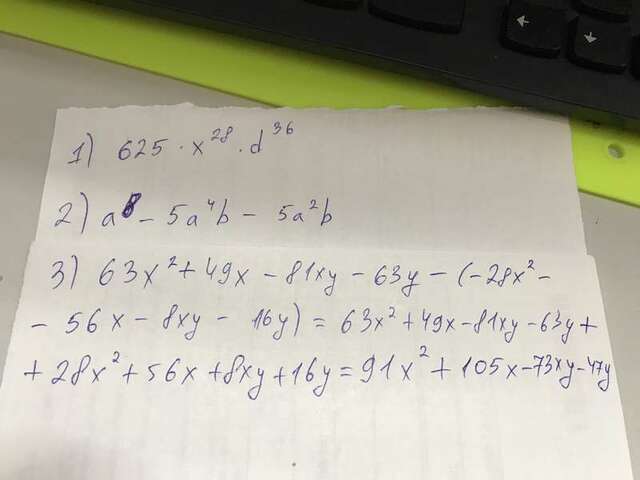 1) 625 · x²⁸ · d³⁶
2) a⁸ - 5a⁴b - 5a²b
3) 63x² + 49x - 81xy - 63y - (-28x² -
- 56x - 8xy - 16y) = 63x² + 49x - 81xy - 63y +
+ 28x² + 56x + 8xy + 16y = 91x² + 105x - 73xy - 47y